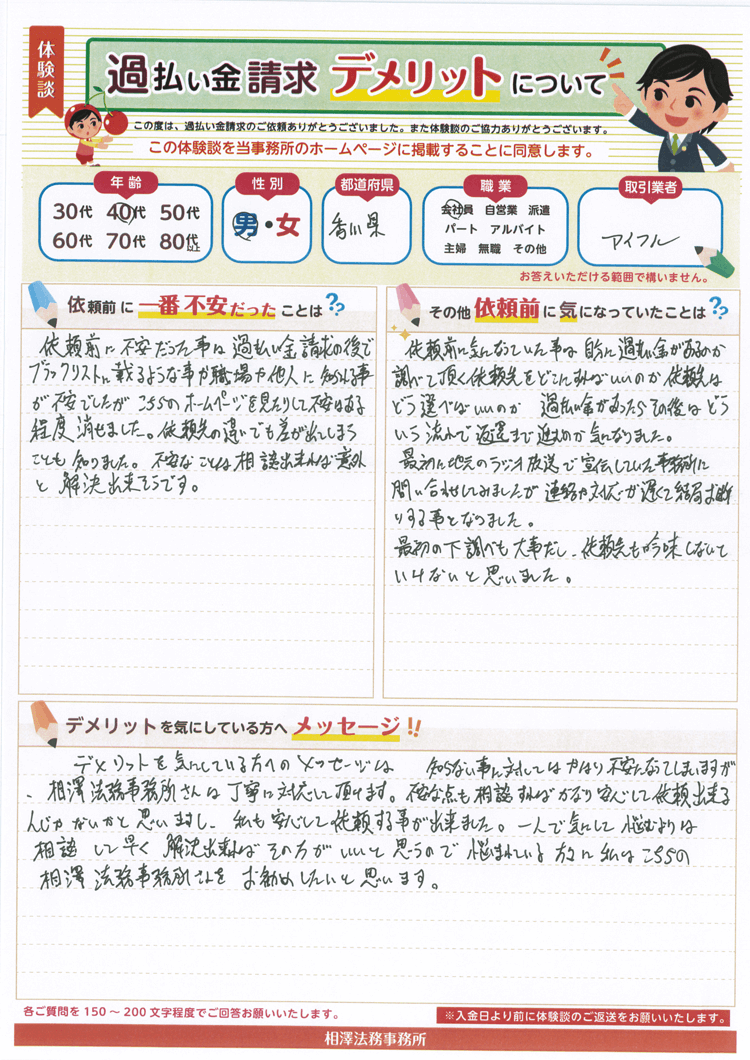 体験談
過払い金請求 デメリットについて
この度は、過払い金請求のご依頼ありがとうございました。また体験談のご協力ありがとうございます。
この体験談を当事務所のホームページに掲載することに同意します。
年齢
30代 40代 50代
60代 70代 80代以上
性別
男・女
都道府県
香川県
職業
会社員 自営業 派遣
パート アルバイト
主婦 無職 その他
取引業者
アイフル
お答えいただける範囲で構いません。
依頼前に一番不安だったことは??
依頼前に不安だった事は過払い金請求の後で
ブラックリストに載るような事や職場や他人に知られる事
が不安でしたがこちらのホームページを見たりして不安はある
程度消せました。依頼先の違いでも差が出てしまう
ことも知りました。不安なことは相談出来れば意外
と解決出来そうです。
その他依頼前に気になっていたことは??
依頼前に気になっていた事は自分に過払い金があるのか
調べて頂く依頼先をどこにすればいいのか依頼先は
どう選べばいいのか 過払い金があったらその後はどう
いう流れで返還まで進むのか気になりました。
最初に地元のラジオ放送で宣伝していた事務所に
問い合わせしてみましたが連絡や対応が遅くて結局お断
りする事となりました。
最初の下調べも大事だし、依頼先も吟味しないと
いけないと思いました。
デメリットを気にしている方へメッセージ!!
デメリットを気にしている方へのメッセージは 知らない事に対してはかなり不安になってしまいますが
、相澤法務事務所さんは丁寧に対応して頂けます。不安な点も相談すればかなり安心して依頼出来る
んじゃないかと思いますし、私も安心して依頼する事が出来ました。一人で気にして悩むよりは
相談して早く解決出来ればその方がいいと思うので悩まれている方に私はこちらの
相澤法務事務所さんをお勧めしたいと思います。
各ご質問を150〜200文字程度でご回答お願いいたします。
※入金日より前に体験談のご返送をお願いいたします。
相澤法務事務所